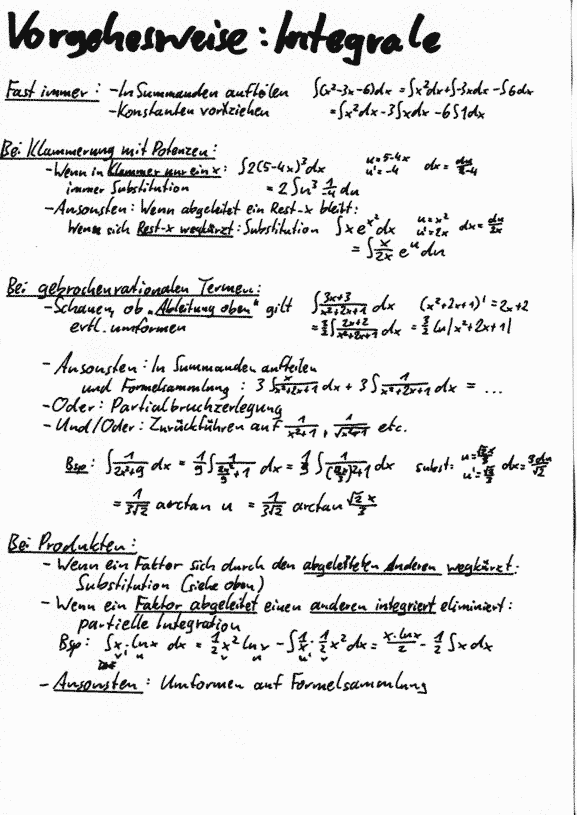 Vorgehesweise: Integrale
Fast immer: - In Summanden aufteilen ∫(x²-3x-6)dx = ∫x²dx+∫-3xdx - ∫6dx
- Konstanten vorziehen = ∫x²dx - 3∫xdx - 6∫1dx
Bei Klammerung mit Potenzen:
- Wenn in Klammer nur ein x: ∫2(5-4x)³dx u=5-4x u'=-4 dx=du/-4
immer Substitution = 2∫u³ 1/-4 du
- Ansonsten: Wenn abgeleitet ein Rest-x bleibt:
Wenn sich Rest-x wegkürzt: Substitution ∫x e^x² dx u=x² u'=2x dx=du/2x
= ∫x/2x e^u du
Bei gebrochenrationalen Termen:
- Schauen, ob „Ableitung oben" gilt ∫(3x+3)/(x²+2x+1) dx (x²+2x+1)' = 2x+2
evtl. umformen = 3/2∫(2x+2)/(x²+2x+1) dx = 3/2 ln|x²+2x+1|
- Ansonsten: In Summanden aufteilen
und Formelsammlung: 3∫x/(x²+2x+1) dx + 3∫1/(x²+2x+1) dx = ...
- Oder: Partialbruchzerlegung
- Und/Oder: Zurückführen auf 1/(x²+1), 1/√(x²+1) etc.
Bsp: ∫1/(2x²+9) dx = 1/9∫1/(2x²/9+1) dx = 1/9∫1/((√2x/3)²+1) dx subst: u=√2x/3 u'=√2/3 dx=3du/√2
= 1/3√2 arctan u = 1/3√2 arctan √2 x/3
Bei Produkten:
- Wenn ein Faktor sich durch den abgeleiteten Anderen wegkürzt:
Substitution (siehe oben)
- Wenn ein Faktor abgeleitet einen anderen integriert eliminiert:
partielle Integration
Bsp: ∫x · lnx dx = 1/2 x² lnx - ∫1/x · 1/2 x² dx = x·lnx/2 - 1/2∫x dx
v' u v u u' v
- Ansonsten: Umformen auf Formelsammlung